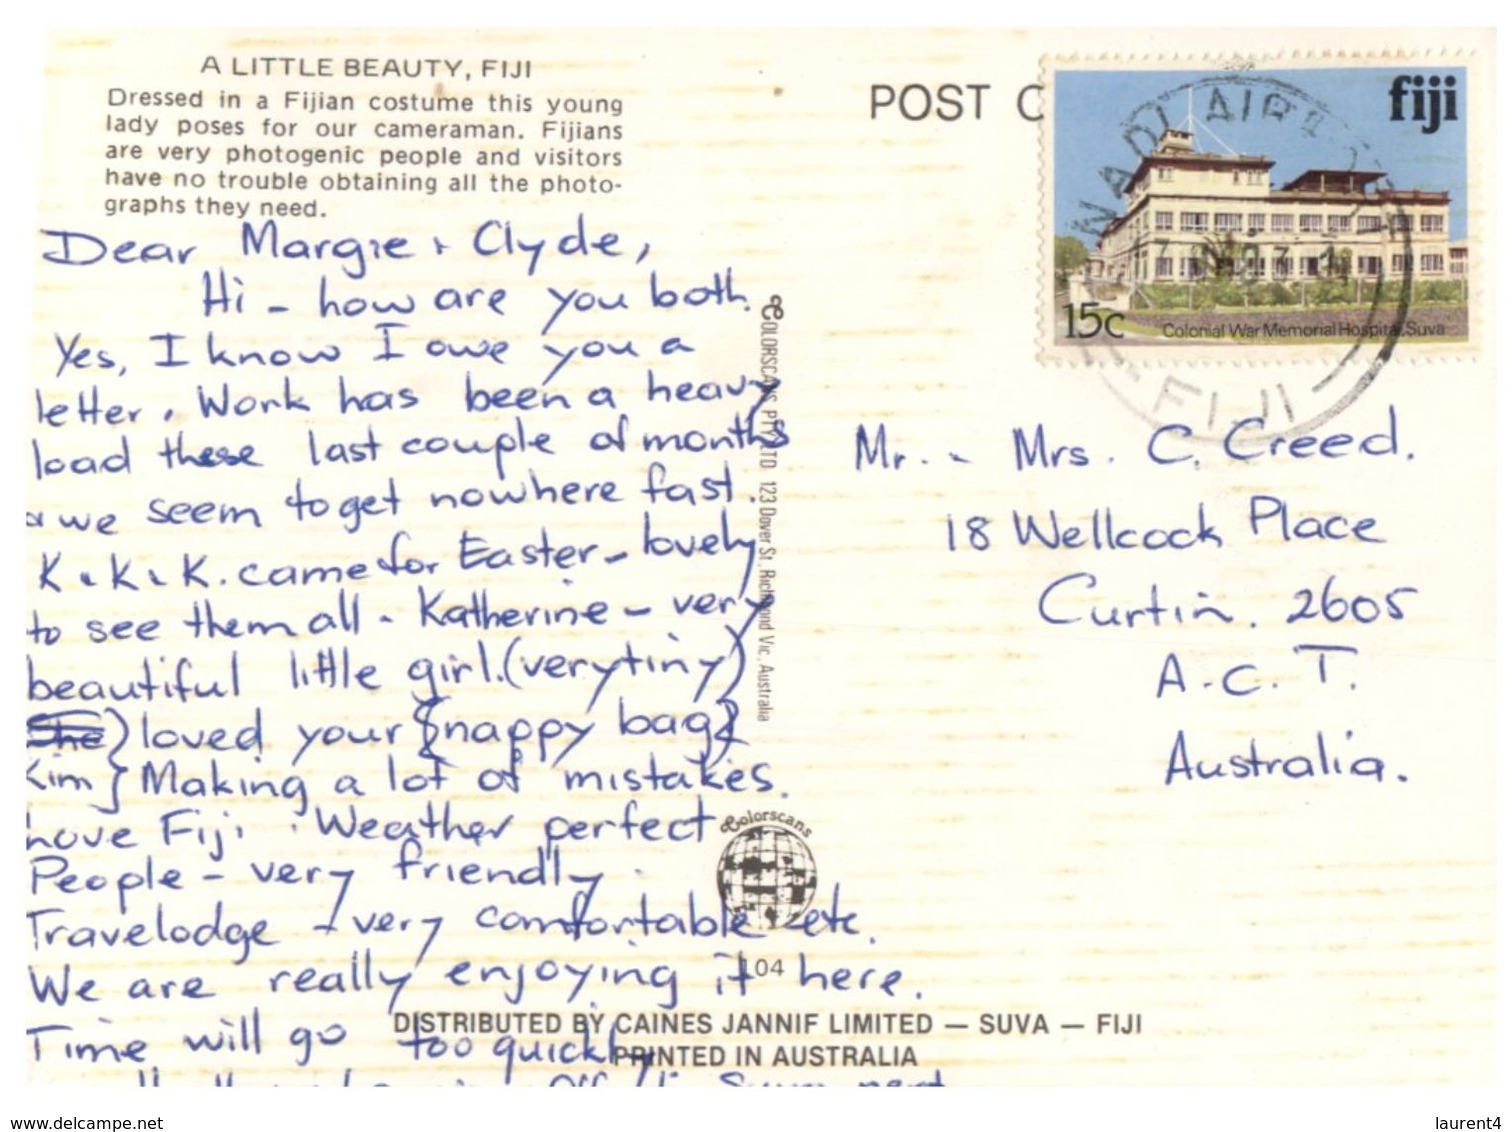 A LITTLE BEAUTY, FIJI
Dressed in a Fijian costume this young
lady poses for our cameraman. Fijians
are very photogenic people and visitors
have no trouble obtaining all the photo-
graphs they need.
Dear Margie & Clyde,
Hi - how are you both.
Yes, I know I owe you a
letter. Work has been a heavy
load these last couple of months
& we seem to get nowhere fast.
K & K & K. came for Easter - lovely
to see them all. Katherine - very
beautiful little girl. (very tiny)
She } loved your {nappy bag}
Kim } Making a lot of mistakes.
Love Fiji. Weather perfect
People - very friendly.
Travelodge - very comfortable etc.
We are really enjoying it here.
Time will go too quickly
off to Suva next
COLORSCANS PTY LTD 123 Dover St., Richmond Vic. Australia
Colorscans
104
DISTRIBUTED BY CAINES JANNIF LIMITED — SUVA — FIJI
PRINTED IN AUSTRALIA
POST C
fiji
15c
Colonial War Memorial Hospital, Suva
NADI AIRPORT
FIJI
Mr. & Mrs. C. Creed.
18 Wellcock Place
Curtin. 2605
A.C.T.
Australia.
delcampe.net
laurent4